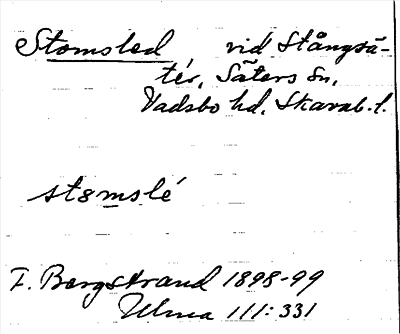 Stomsled vid Stångsä-
ter, Säters sn,
Vadsbo hd, Skarab. l.
stɵmslé
F. Bergstrand 1898-99
Ulma 111:331